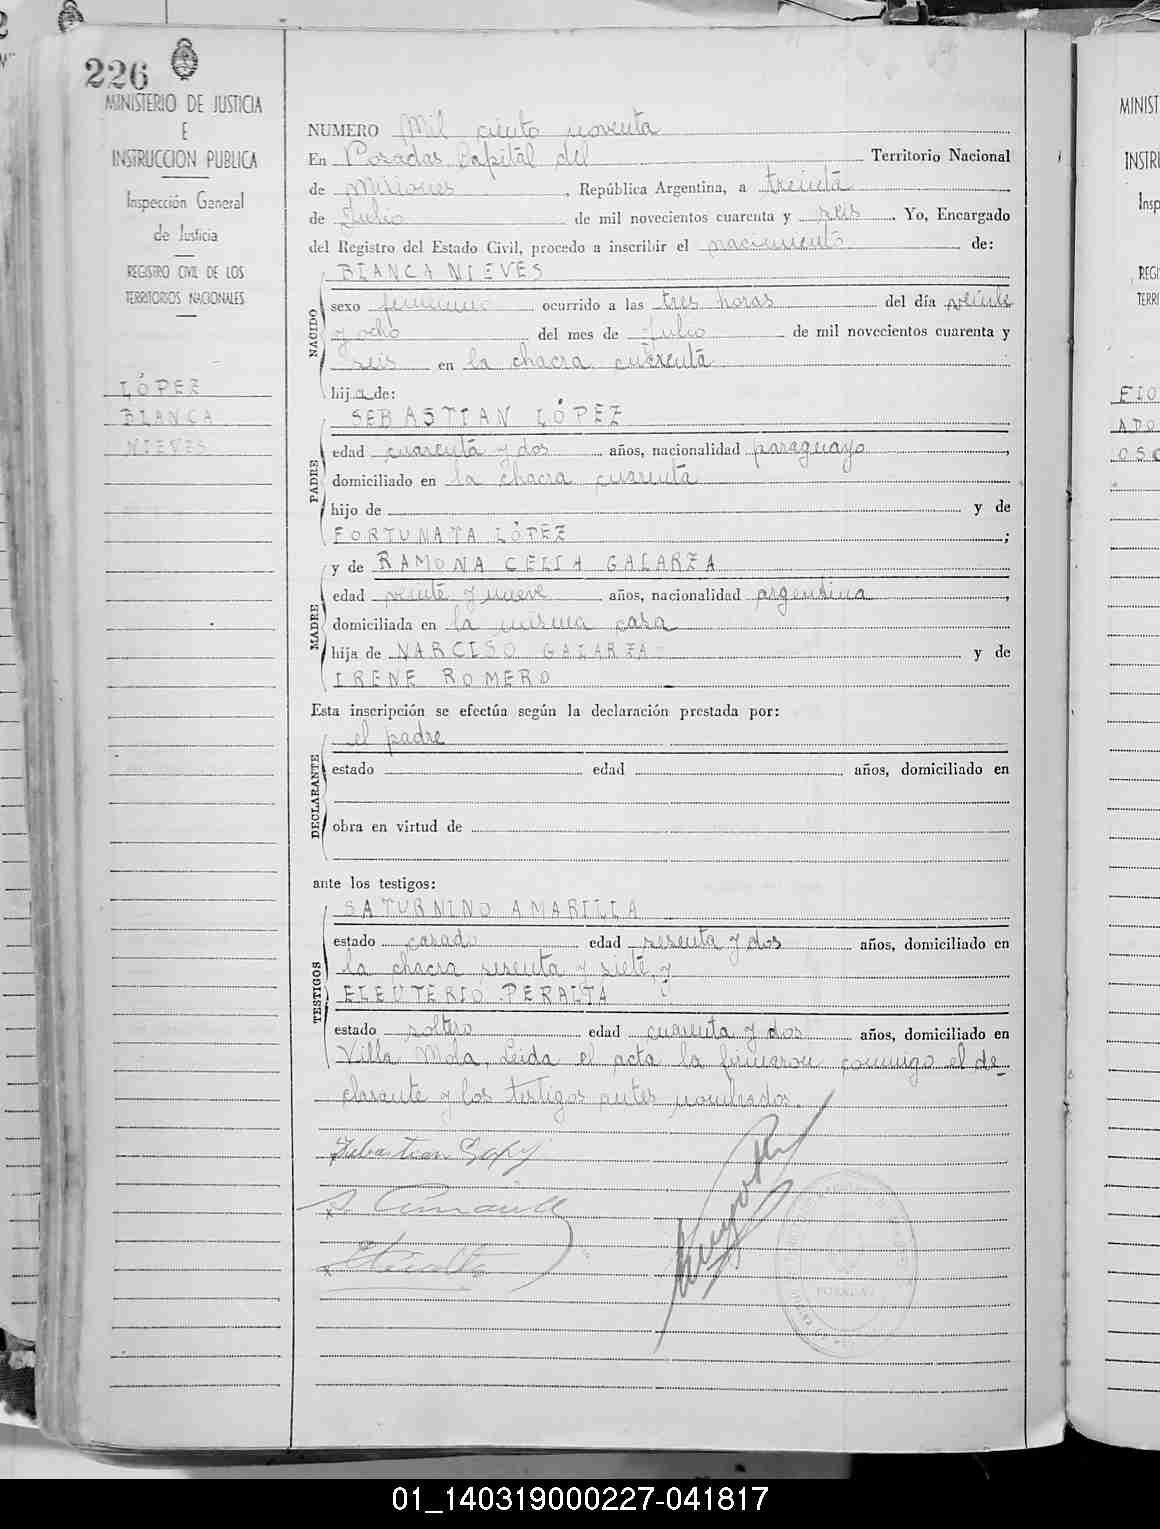 226
MINISTERIO DE JUSTICIA
E
INSTRUCCION PUBLICA
Inspección General
de Justicia
REGISTRO CIVIL DE LOS
TERRITORIOS NACIONALES
LÓPEZ
BLANCA
NIEVES
NUMERO Mil ciento noventa
En Posadas Capital del Territorio Nacional
de Misiones, República Argentina, a treinta
de Julio de mil novecientos cuarenta y seis. Yo, Encargado
del Registro del Estado Civil, procedo a inscribir el nacimiento de:
BLANCA NIEVES
NACIDO
sexo femenino ocurrido a las tres horas del día veinte
y ocho del mes de Julio de mil novecientos cuarenta y
seis en la chacra cuarenta
hija de:
SEBASTIAN LÓPEZ
PADRE
edad cuarenta y dos años, nacionalidad paraguayo,
domiciliado en la chacra cuarenta
hijo de y de
FORTUNATA LÓPEZ;
y de RAMONA CELIA GALARZA
MADRE
edad veinte y nueve años, nacionalidad argentina,
domiciliada en la misma casa
hija de NARCISO GALARZA y de
IRENE ROMERO
Esta inscripción se efectúa según la declaración prestada por:
el padre
DECLARANTE
estado edad años, domiciliado en
obra en virtud de
ante los testigos:
SATURNINO AMARILLA
TESTIGOS
estado casado edad sesenta y dos años, domiciliado en
la chacra sesenta y siete, y
ELEUTERIO PERALTA
estado soltero edad cuarenta y dos años, domiciliado en
Villa Mola. Leida el acta la firmaron conmigo el de-
clarante y los testigos antes nombrados.
Sebastian Lopez
S. Amarilla
E Peralta
POSADAS
MINIST
INSTRU
Insp
REGI
TERRI
01_140319000227-041817